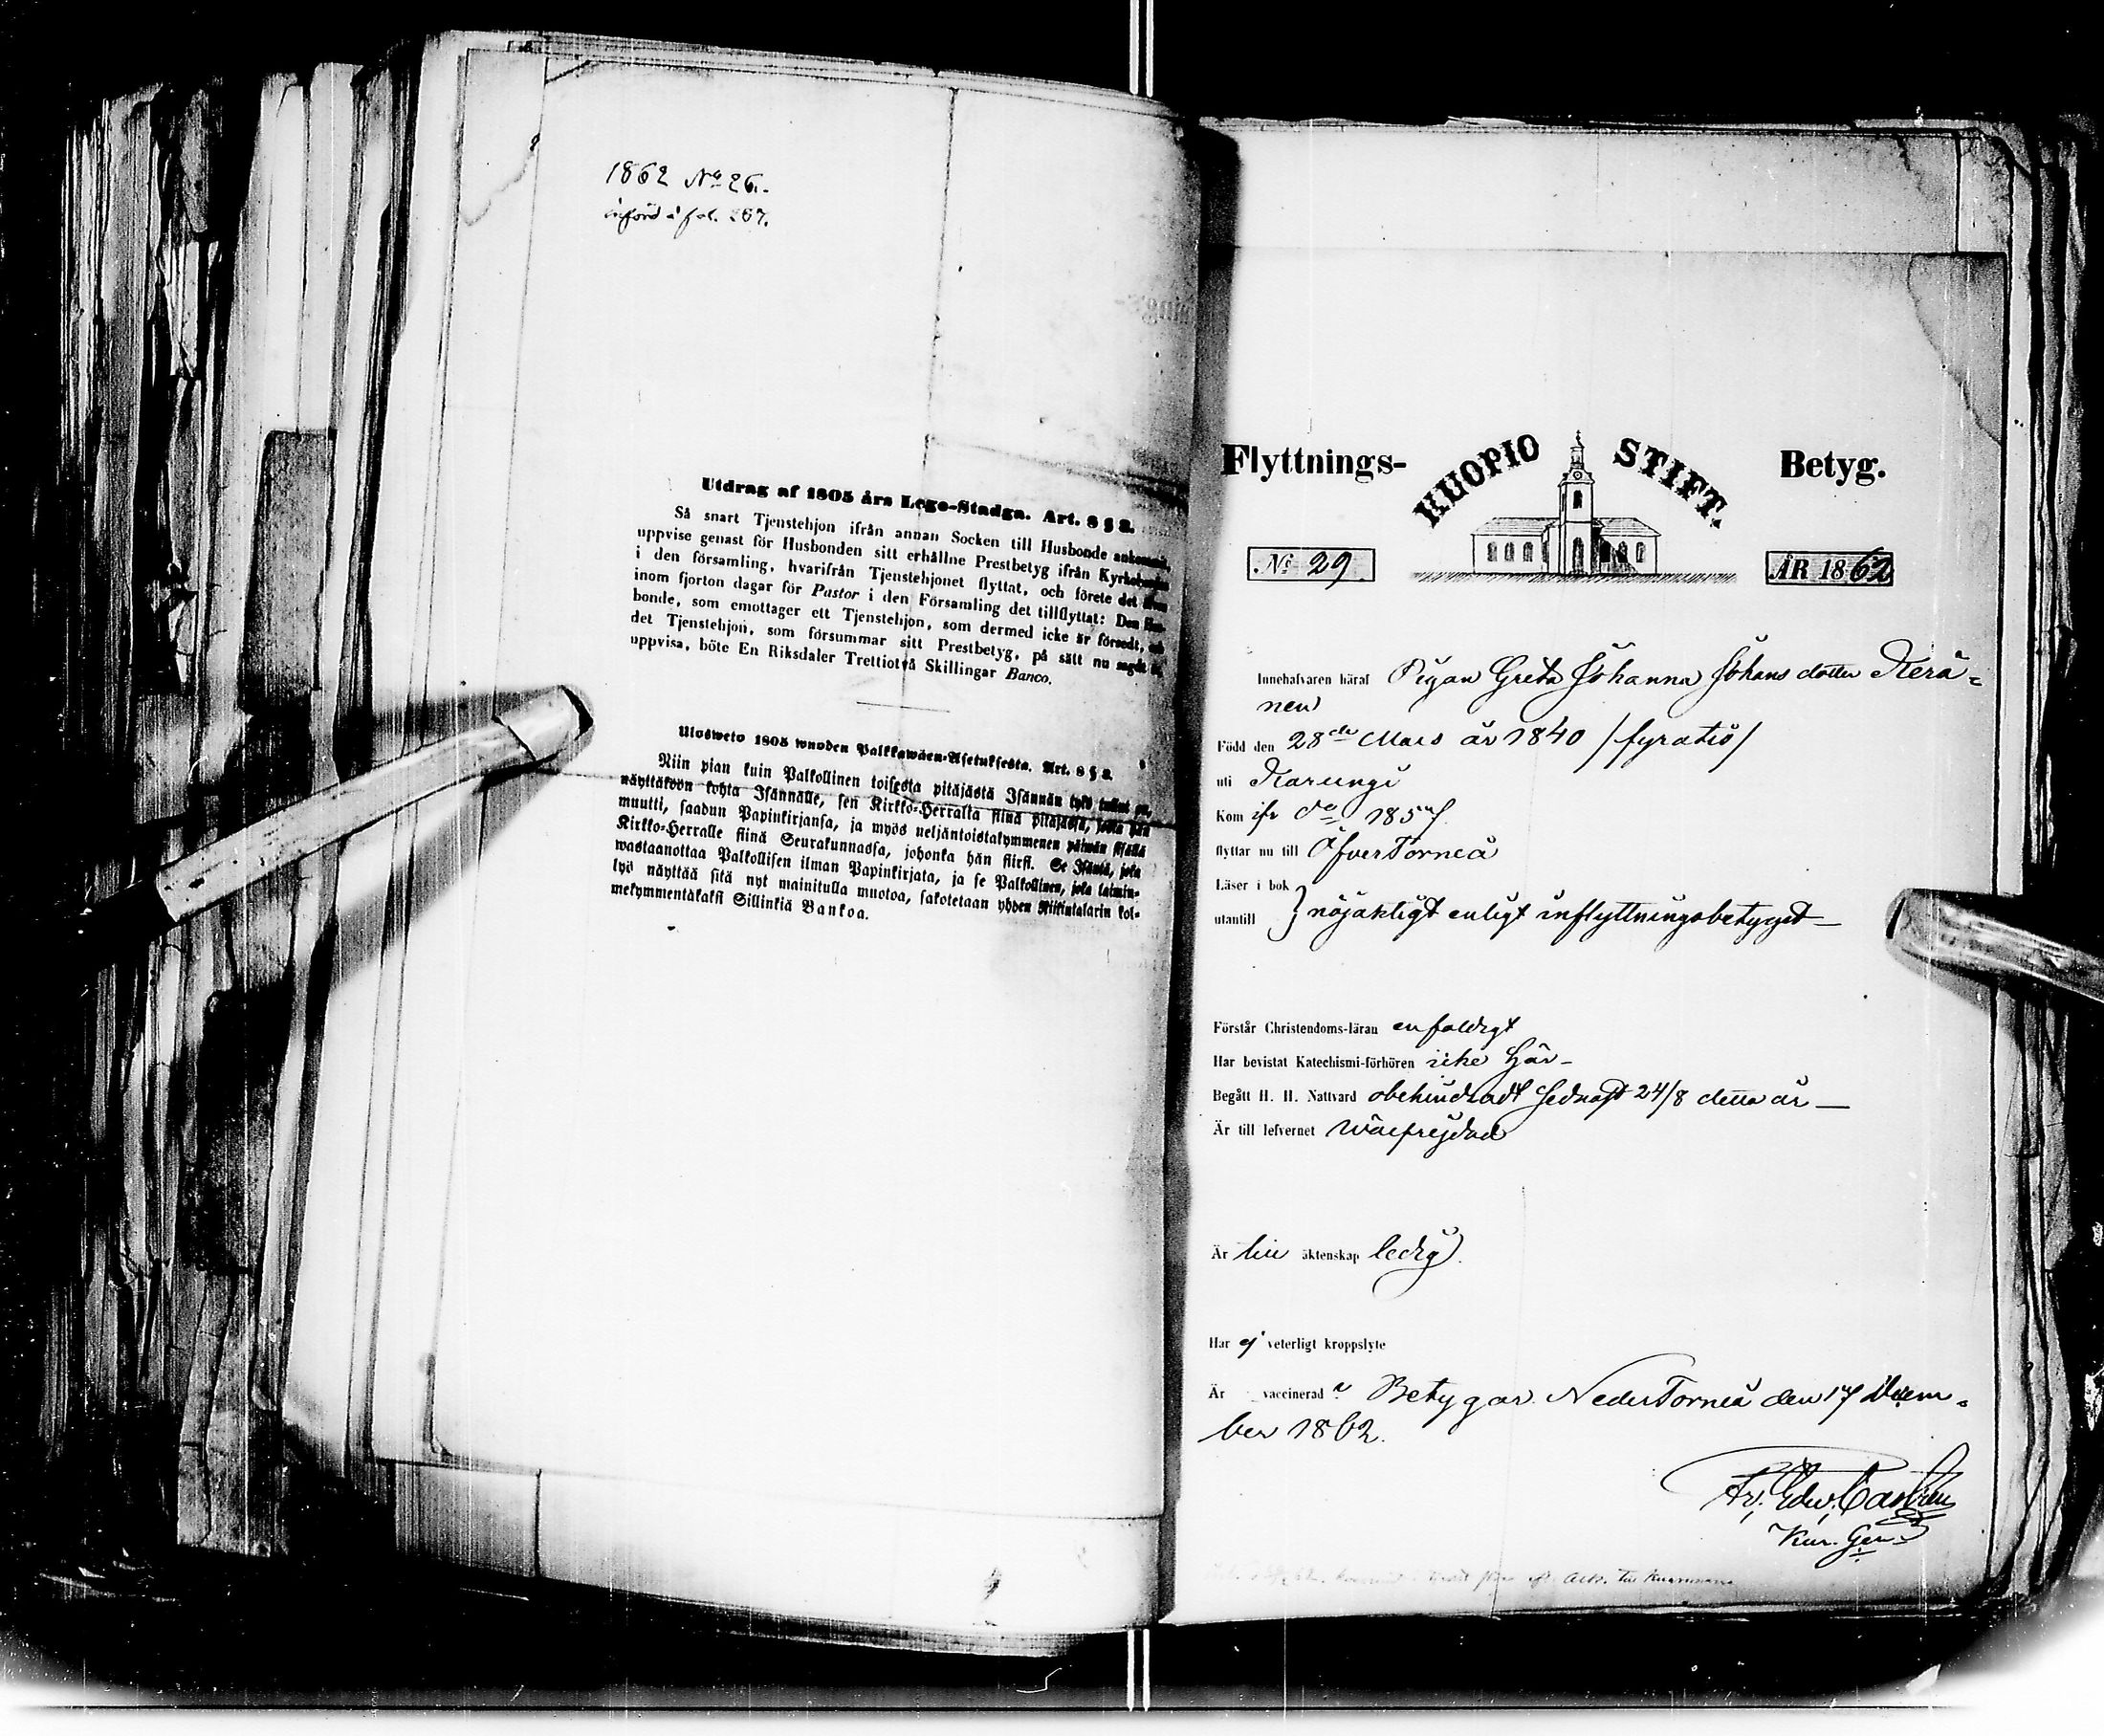 1862 No 26.
införd å fol. 267.
Utdrag af 1805 års Lego-Stadga. Art. 8 § 2.
Så snart Tjenstehjon ifrån annan Socken till Husbonde ankommit,
uppvise genast för Husbonden sitt erhållne Prestbetyg ifrån Kyrkoherden
i den församling, hvarifrån Tjenstehjonet flyttat, och förete det äfven
inom fjorton dagar för Pastor i den Församling det tillflyttat: Den Hus-
bonde, som emottager ett Tjenstehjon, som dermed icke är försedt, och
det Tjenstehjon, som försummar sitt Prestbetyg, på sätt nu sagdt är,
uppvisa, böte En Riksdaler Trettiotvå Skillingar Banco.
Ulosweto 1805 wuoden Palkkawäen-Asetuksesta. Art. 8 § 2.
Niin pian kuin Palkollinen toisesta pitäjästä Isännän tykö tullut on,
näyttäköön kohta Isännälle, sen Kirkko-Herralta siinä pitäjässä, josta hän
muutti, saadun Papinkirjansa, ja myös neljäntoistakymmenen päiwän sisällä
Kirkko-Herralle siinä Seurakunnassa, johonka hän siirsi. Se Isäntä, joka
wastaanottaa Palkollisen ilman Papinkirjata, ja se Palkollinen, joka laimin-
lyö näyttää sitä nyt mainitulla muotoa, sakotetaan yhden Riikintalarin kol-
mekymmentäkaksi Sillinkiä Bankoa.
Flyttnings- KUOPIO STIFT. Betyg.
No 29 ÅR 1862
Innehafvaren häraf Pigan Greta Johanna Johans dotter Kerä-
nen
Född den 28de Mars år 1840 /fyratio/
uti Karungi
Kom ifr do 1857
flyttar nu till Öfver Torneå
Läser i bok
utantill } nöjaktigt enligt inflyttningsbetyget —
Förstår Christendoms-läran enfaldigt
Har bevistat Katechismi-förhören icke här —
Begått H. H. Nattvard obehindradt sednast 24/8 detta år —
Är till lefvernet wälfrejdad
Är till äktenskap ledig.
Har ej veterligt kroppslyte
Är vaccinerad Betygar NederTorneå den 17 Decem-
ber 1862.
Edw. Castrén